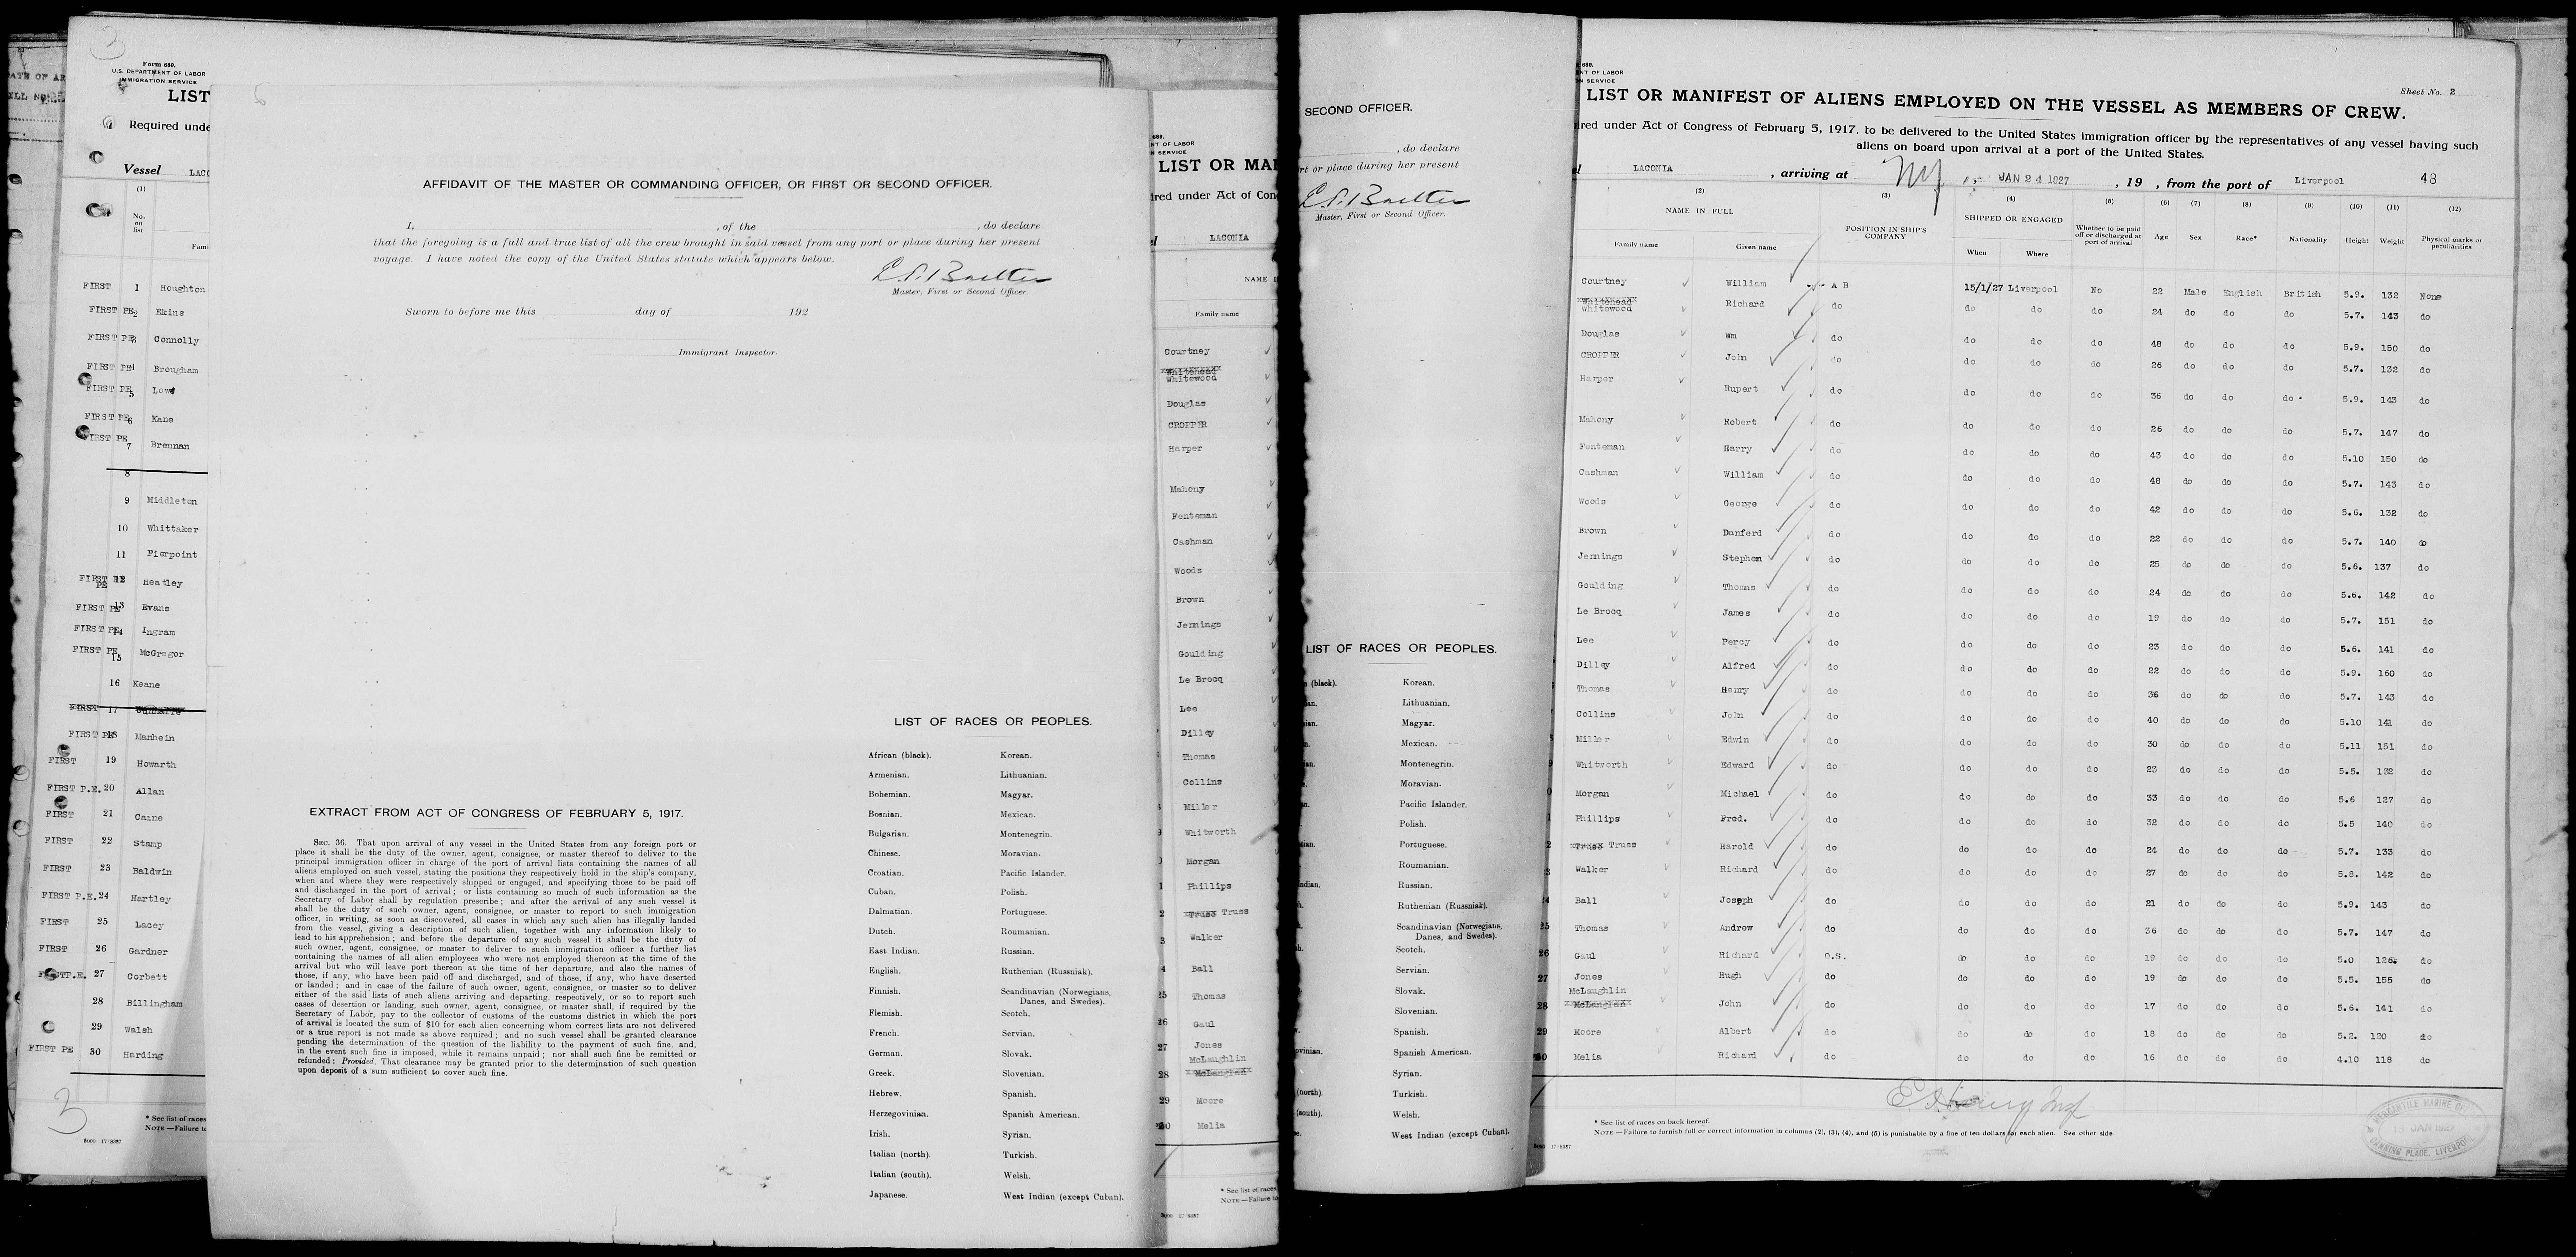 3
Form 680.
U.S. DEPARTMENT OF LABOR
IMMIGRATION SERVICE
LIST
Required unde
Vessel LACO
(1)
No. on list
Fami
FIRST 1 Houghton
FIRST PE 2 Ekins
FIRST PE 3 Connolly
FIRST PE 4 Brougham
FIRST PE 5 Lowe
FIRST PE 6 Kane
FIRST PE 7 Brennan
8
9 Middleton
10 Whittaker
11 Pierpoint
FIRST PE 12 Heatley
FIRST PE 13 Evans
FIRST PE 14 Ingram
FIRST PE 15 McGregor
16 Keane
FIRST 17
FIRST PE 18 Manhein
FIRST 19 Howarth
FIRST P.E. 20 Allan
FIRST 21 Caine
FIRST 22 Stamp
FIRST 23 Baldwin
FIRST P.E. 24 Hartley
FIRST 25 Lacey
FIRST 26 Gardner
FIRST P.E. 27 Corbett
28 Billingham
29 Walsh
FIRST PE 30 Harding
3
* See list of races
NOTE.—Failure to
6
AFFIDAVIT OF THE MASTER OR COMMANDING OFFICER, OR FIRST OR SECOND OFFICER.
I, , of the , do declare
that the foregoing is a full and true list of all the crew brought in said vessel from any port or place during her present
voyage. I have noted the copy of the United States statute which appears below.
Master, First or Second Officer.
Sworn to before me this day of 192
Immigrant Inspector.
EXTRACT FROM ACT OF CONGRESS OF FEBRUARY 5, 1917.
SEC. 36. That upon arrival of any vessel in the United States from any foreign port or
place it shall be the duty of the owner, agent, consignee, or master thereof to deliver to the
principal immigration officer in charge of the port of arrival lists containing the names of all
aliens employed on such vessel, stating the positions they respectively hold in the ship's company,
when and where they were respectively shipped or engaged, and specifying those to be paid off
and discharged in the port of arrival; or lists containing so much of such information as the
Secretary of Labor shall by regulation prescribe; and after the arrival of any such vessel it
shall be the duty of such owner, agent, consignee, or master to report to such immigration
officer, in writing, as soon as discovered, all cases in which any such alien has illegally landed
from the vessel, giving a description of such alien, together with any information likely to
lead to his apprehension; and before the departure of any such vessel it shall be the duty of
such owner, agent, consignee, or master to deliver to such immigration officer a further list
containing the names of all alien employees who were not employed thereon at the time of the
arrival but who will leave port thereon at the time of her departure, and also the names of
those, if any, who have been paid off and discharged, and of those, if any, who have deserted
or landed; and in case of the failure of such owner, agent, consignee, or master so to deliver
either of the said lists of such aliens arriving and departing, respectively, or so to report such
cases of desertion or landing, such owner, agent, consignee, or master shall, if required by the
Secretary of Labor, pay to the collector of customs of the customs district in which the port
of arrival is located the sum of $10 for each alien concerning whom correct lists are not delivered
or a true report is not made as above required; and no such vessel shall be granted clearance
pending the determination of the question of the liability to the payment of such fine, and,
in the event such fine is imposed, while it remains unpaid; nor shall such fine be remitted or
refunded: Provided, That clearance may be granted prior to the determination of such question
upon deposit of a sum sufficient to cover such fine.
LIST OF RACES OR PEOPLES.
African (black). Korean.
Armenian. Lithuanian.
Bohemian. Magyar.
Bosnian. Mexican.
Bulgarian. Montenegrin.
Chinese. Moravian.
Croatian. Pacific Islander.
Cuban. Polish.
Dalmatian. Portuguese.
Dutch. Roumanian.
East Indian. Russian.
English. Ruthenian (Russniak).
Finnish. Scandinavian (Norwegians,
Danes, and Swedes).
Flemish. Scotch.
French. Servian.
German. Slovak.
Greek. Slovenian.
Hebrew. Spanish.
Herzegovinian. Spanish American.
Irish. Syrian.
Italian (north). Turkish.
Italian (south). Welsh.
Japanese. West Indian (except Cuban).
680.
NT OF LABOR
N SERVICE
LIST OR MA
ired under Act of Con
LACONIA
NAME I
Family name
Courtney
Whitehead
Whitewood
Douglas
CROPPER
Harper
Mahony
Fenteman
Cashman
Woods
Brown
Jennings
Goulding
Le Brocq
Lee
Dilley
Thomas
Collins
Miller
Whitworth
Morgan
Phillips
Truss
Walker
4 Ball
25 Thomas
26 Gaul
27 Jones
McLaughlin
28
29 Moore
30 Melia
* See list of races
NOTE.—Failure to
SECOND OFFICER.
, do declare
rt or place during her present
Master, First or Second Officer.
LIST OF RACES OR PEOPLES.
(black). Korean.
Lithuanian.
Magyar.
Mexican.
Montenegrin.
Moravian.
Pacific Islander.
Polish.
Portuguese.
Roumanian.
ndian. Russian.
Ruthenian (Russniak).
Scandinavian (Norwegians,
Danes, and Swedes).
Scotch.
Servian.
Slovak.
Slovenian.
Spanish.
ovinian. Spanish American.
Syrian.
(north). Turkish.
(south). Welsh.
West Indian (except Cuban).
680.
NT OF LABOR
N SERVICE
Sheet No. 2
LIST OR MANIFEST OF ALIENS EMPLOYED ON THE VESSEL AS MEMBERS OF CREW.
ired under Act of Congress of February 5, 1917, to be delivered to the United States immigration officer by the representatives of any vessel having such
aliens on board upon arrival at a port of the United States.
LACONIA , arriving at NY JAN 24 1927 , 19 , from the port of Liverpool 43
(2) (3) (4) (5) (6) (7) (8) (9) (10) (11) (12)
NAME IN FULL POSITION IN SHIP'S COMPANY SHIPPED OR ENGAGED Whether to be paid off or discharged at port of arrival Age Sex Race* Nationality Height Weight Physical marks or peculiarities
Family name Given name When Where
Courtney William A B 15/1/27 Liverpool No 22 Male English British 5.9. 132 None
Whitehead
Whitewood Richard do do do do 24 do do do 5.7. 143 do
Douglas Wm do do do do 48 do do do 5.9. 150 do
CROPPER John do do do do 26 do do do 5.7. 132 do
Harper Rupert do do do do 36 do do do 5.9. 143 do
Mahony Robert do do do do 26 do do do 5.7. 147 do
Fenteman Harry do do do do 43 do do do 5.10 150 do
Cashman William do do do do 48 do do do 5.7. 143 do
Woods George do do do do 42 do do do 5.6. 132 do
Brown Danferd do do do do 22 do do do 5.7. 140 do
Jennings Stephen do do do do 25 do do do 5.6. 137 do
Goulding Thomas do do do do 24 do do do 5.6. 142 do
Le Brocq James do do do do 19 do do do 5.7. 151 do
Lee Percy do do do do 23 do do do 5.6. 141 do
Dilley Alfred do do do do 22 do do do 5.9. 160 do
Thomas Henry do do do do 36 do do do 5.7. 143 do
Collins John do do do do 40 do do do 5.10 141 do
Miller Edwin do do do do 30 do do do 5.11 151 do
Whitworth Edward do do do do 23 do do do 5.5. 132 do
Morgan Michael do do do do 33 do do do 5.6 127 do
Phillips Fred. do do do do 32 do do do 5.5 140 do
Truss Harold do do do do 24 do do do 5.7. 133 do
Walker Richard do do do do 27 do do do 5.8. 142 do
Ball Joseph do do do do 21 do do do 5.9. 143 do
25 Thomas Andrew do do do do 36 do do do 5.7. 147 do
26 Gaul Richard O.S. do do do 19 do do do 5.0 126 do
27 Jones Hugh do do do do 19 do do do 5.5. 155 do
McLaughlin
28 John do do do do 17 do do do 5.6. 141 do
29 Moore Albert do do do do 18 do do do 5.2. 120 do
30 Melia Richard do do do do 16 do do do 4.10 118 do
* See list of races on back hereof.
NOTE.—Failure to furnish full or correct information in columns (2), (3), (4), and (5) is punishable by a fine of ten dollars for each alien. See other side
MERCANTILE MARINE
JAN 1927
CANNING PLACE, LIVERPOOL